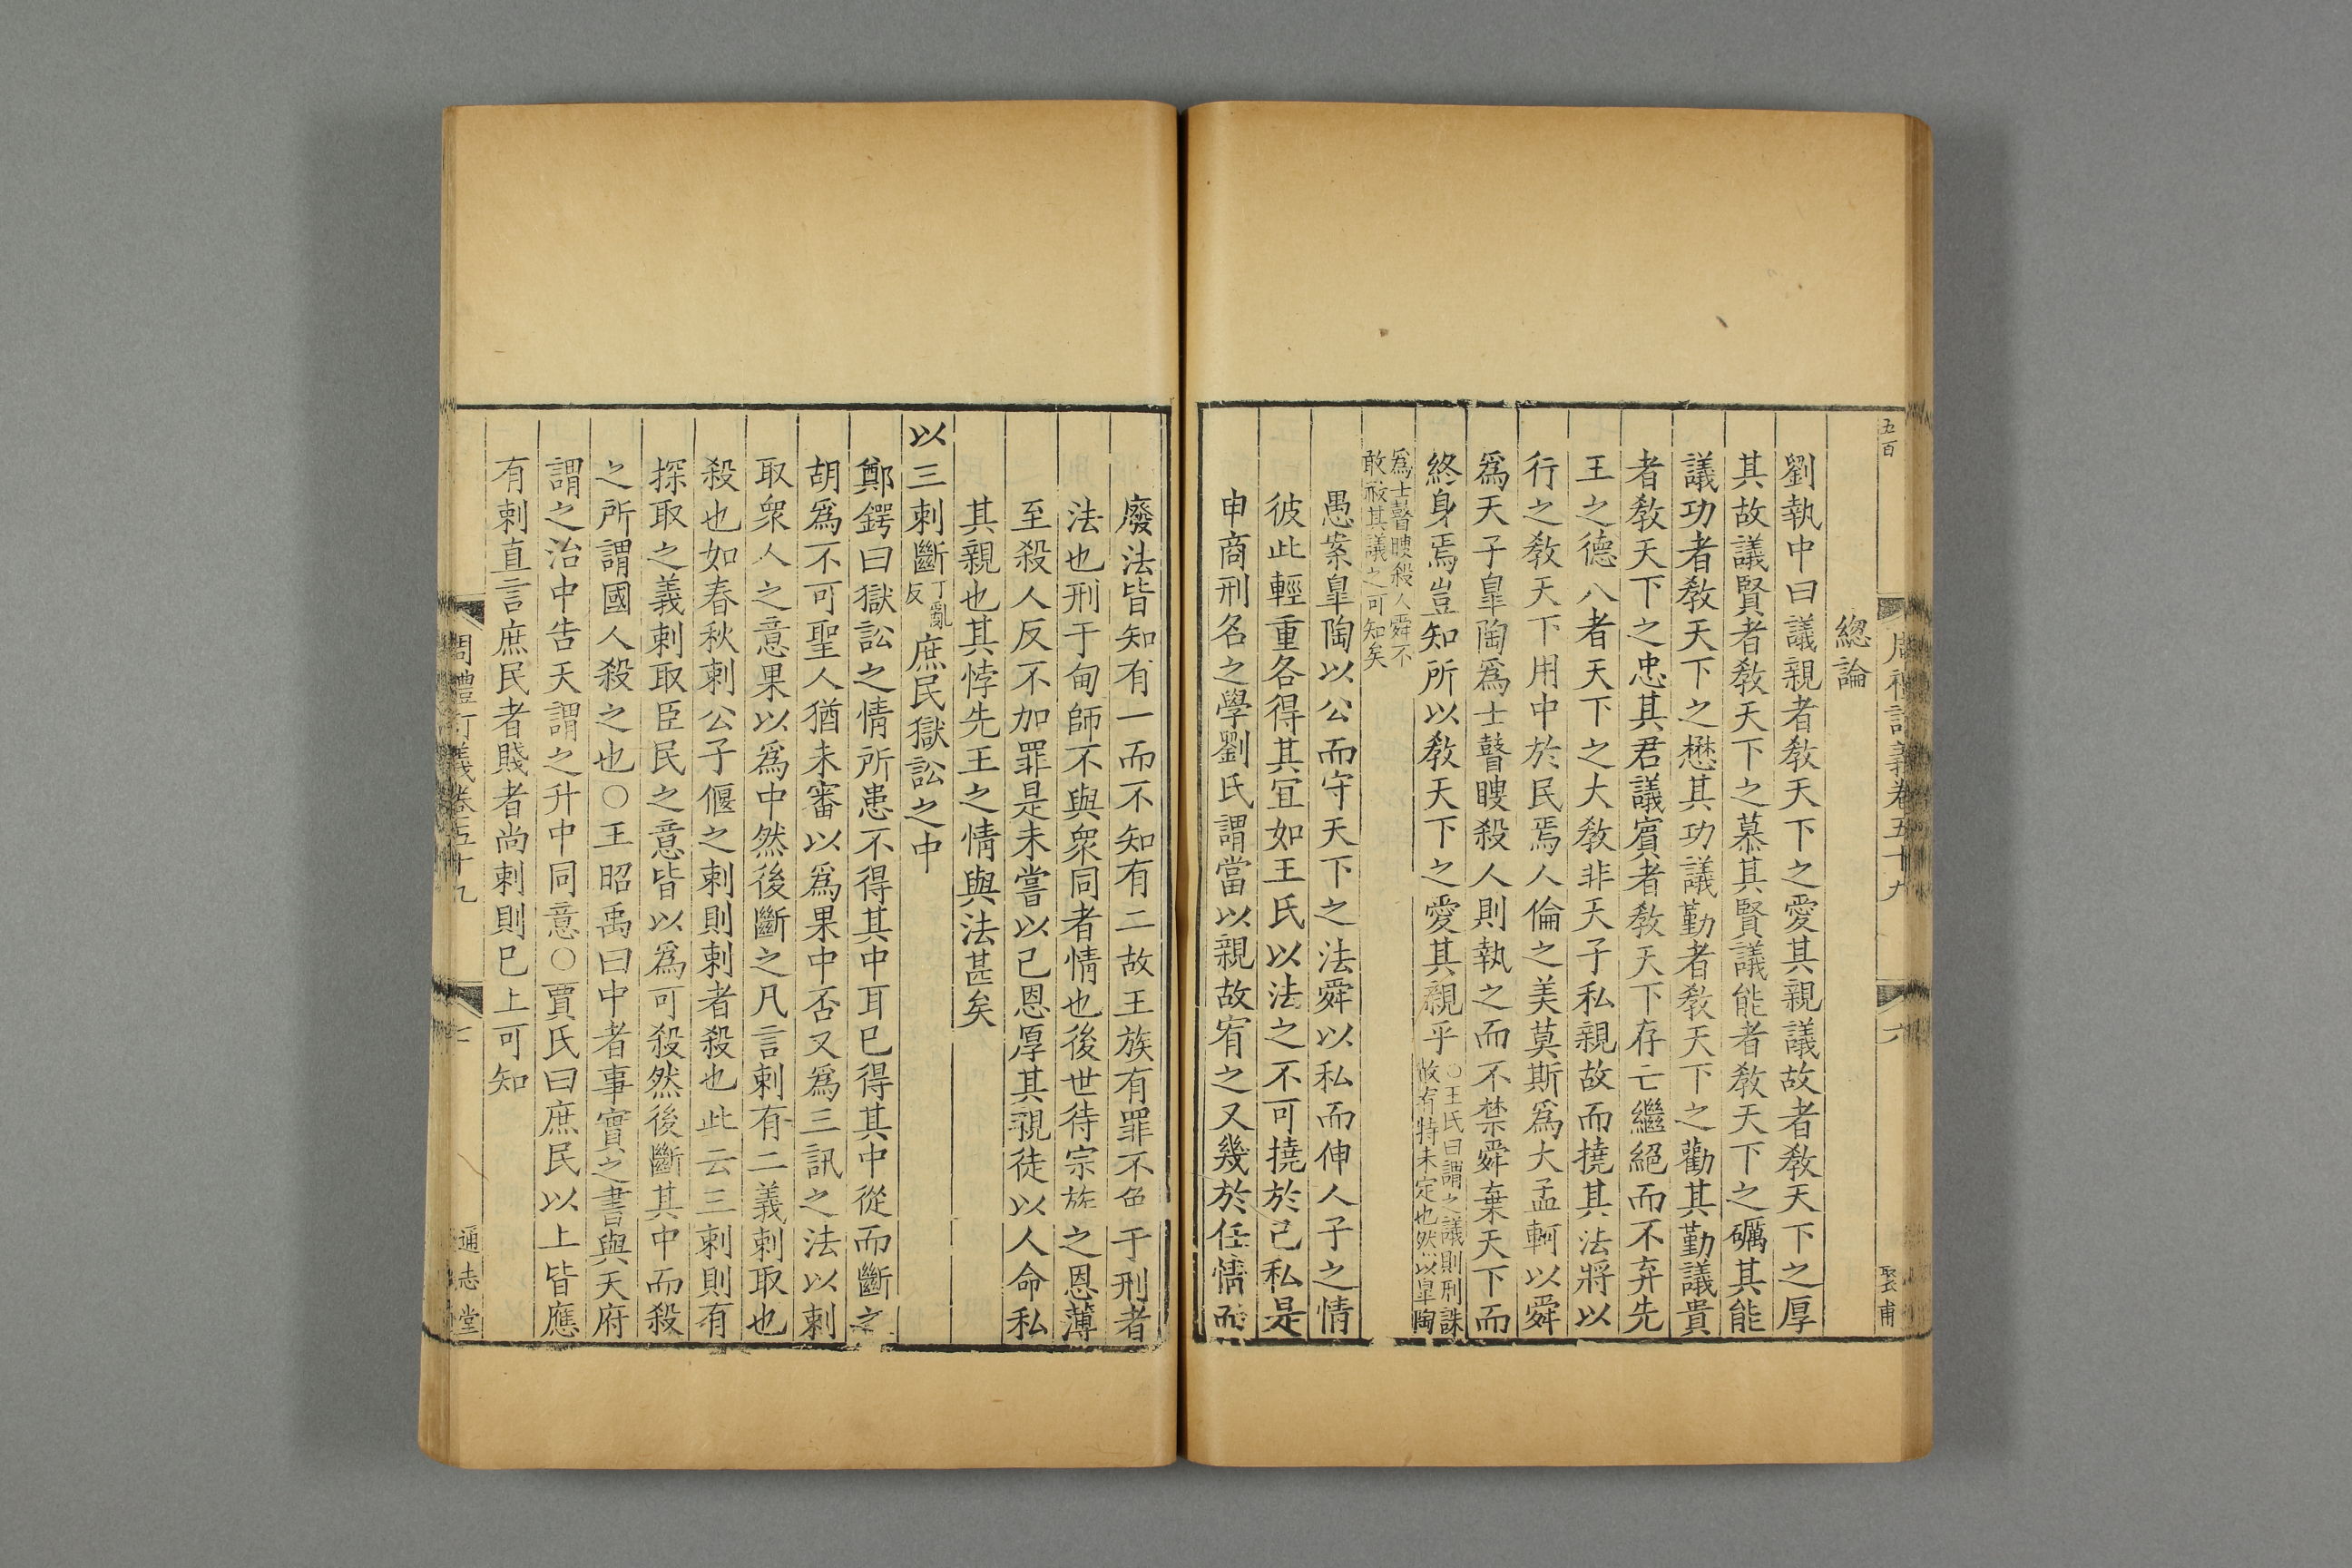 五百
周禮訂義卷五十九
六
聚甫
緫論
劉執中曰議親者敎天下之愛其親議故者敎天下之厚
其故議賢者敎天下之慕其賢議能者敎天下之礪其能
議功者敎天下之懋其功議勤者敎天下之勸其勤議貴
者敎天下之忠其君議賔者敎天下存亡繼絕而不弃先
王之德八者天下之大敎非天子私親故而撓其法將以
行之敎天下用中於民焉人倫之美莫斯爲大孟軻以舜
爲天子皐陶爲士瞽瞍殺人則執之而不禁舜棄天下而
終身焉豈知所以敎天下之愛其親乎
○王氏曰謂之議則刑誅
赦宥特未定也然以皐陶
爲士瞽瞍殺人舜不
敢赦其議之可知矣
愚案皐陶以公而守天下之法舜以私而伸人子之情
彼此輕重各得其宜如王氏以法之不可撓於己私是
申商刑名之學劉氏謂當以親故宥之又幾於任情而
廢法皆知有一而不知有二故王族有罪不免于刑者
法也刑于甸師不與衆同者情也後世待宗族之恩薄
至殺人反不加罪是未嘗以己恩厚其親徒以人命私
其親也其悖先王之情與法甚矣
以三刺斷
丁亂
反
庶民獄訟之中
鄭鍔曰獄訟之情所患不得其中耳巳得其中從而斷之
胡爲不可聖人猶未審以爲果中否又爲三訊之法以刺
取衆人之意果以爲中然後斷之凡言刺有二義刺取也
殺也如春秋刺公子偃之刺則刺者殺也此云三刺則有
探取之義刺取臣民之意皆以爲可殺然後斷其中而殺
之所謂國人殺之也○王昭禹曰中者事實之書與天府
謂之治中告天謂之升中同意○賈氏曰庶民以上皆應
有刺直言庶民者賤者尚刺則巳上可知
周禮訂義卷五十九
七
通志堂